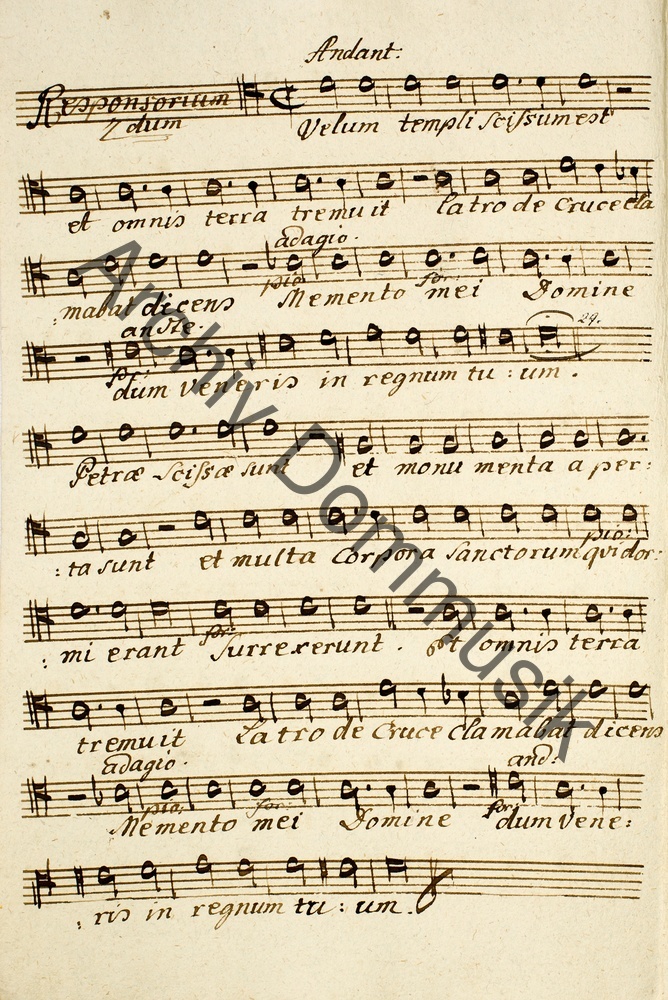 Andant:
Responsorium
2dum
Velum templi scissum est
et omnis terra tremuit latro de cruce cla
adagio.
:mabat dicens Memento mei Domine
pio: for:
anDte.
dum veneris in regnum tu : um.
for: 29.
Petræ scissæ sunt et monu menta a per:
:ta sunt et multa Corpora Sanctorum qui dor:
pio:
:mi erant surrexerunt. Et omnis terra
for:
tremuit Latro de Cruce clamabat dicens
adagio. and:
Memento mei Domine dum vene:
pio: for: for:
:ris in regnum tu : um.
Archiv Dommusik